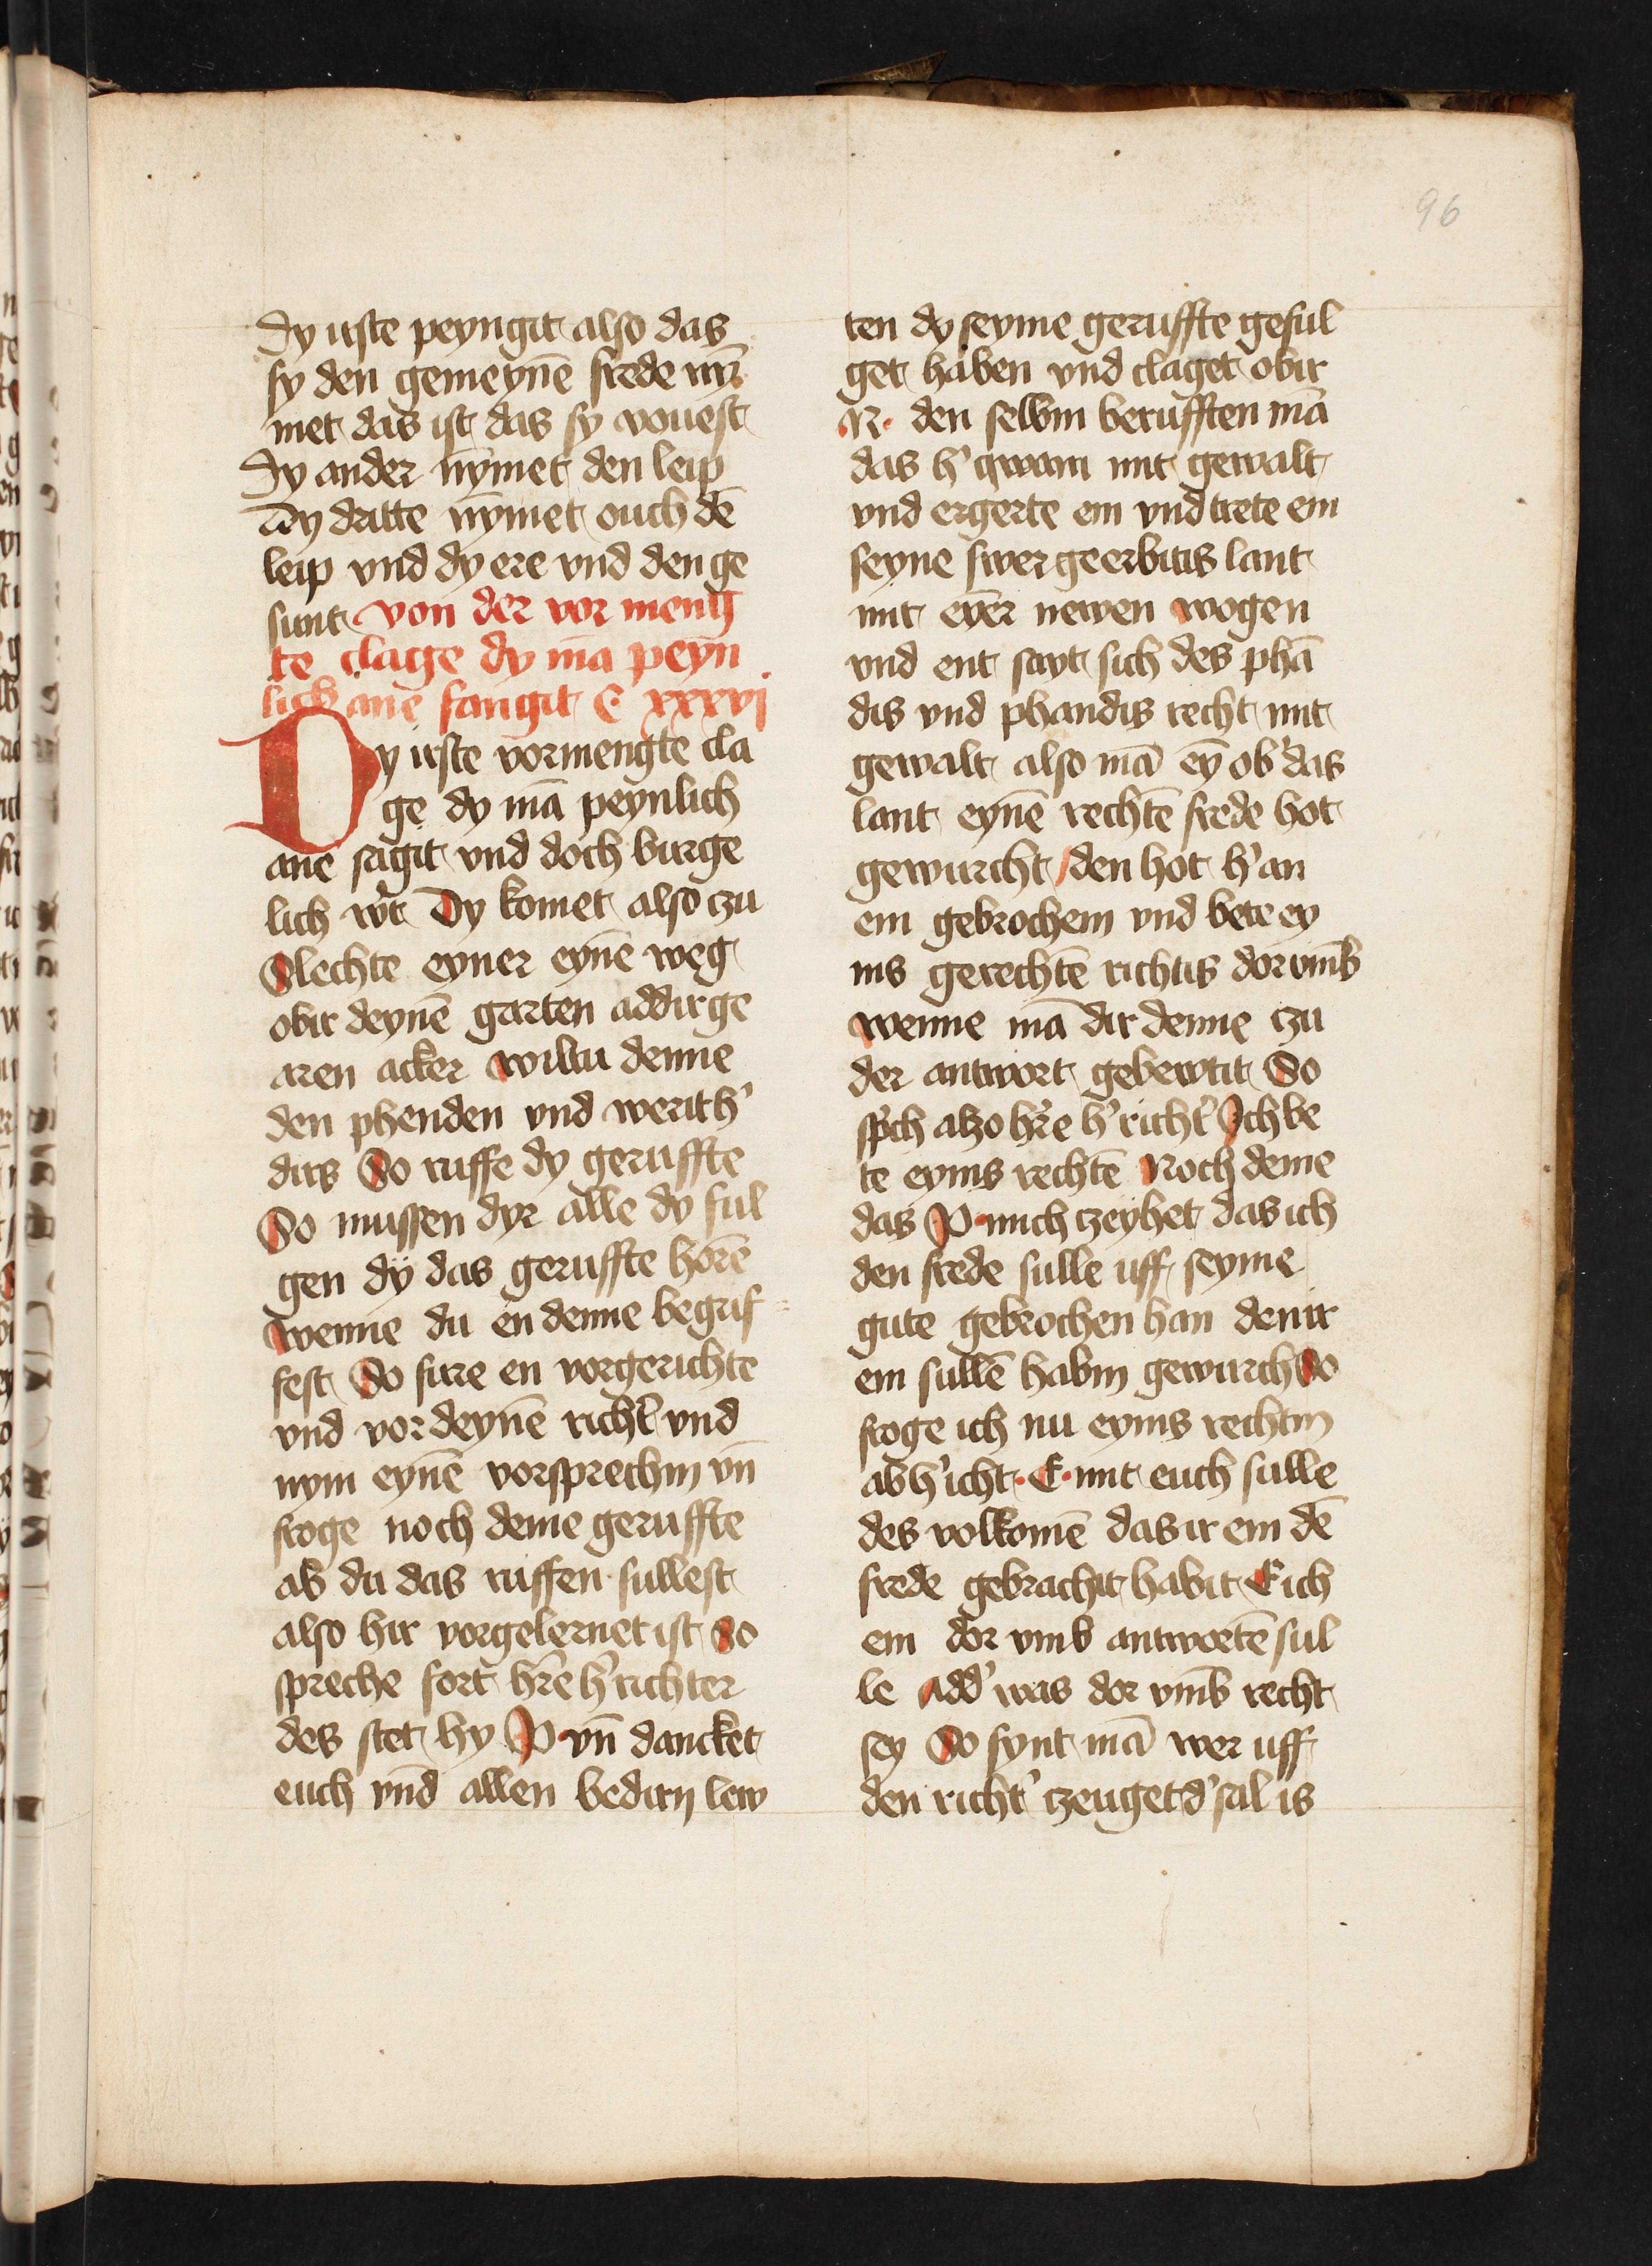 96
dy irste peyngit also das
sy den gemeynē frede nȳ
met das ist das sy vouest
dy ander nȳmet den leip
dy dritte nȳmet ouch dē
leip vnd dy ere vnd den ge
sunt von der vor meng
te clage dy mā peyn
lich ane fangit C xxxvj
Dy irste vormengte cla
ge dy mā peynlich
ane fāgit vnd doch burge
lich wʼt Dy komet also czu
Slechte eyner eynē weg
obir deynē garten addir ge
aren acker wiltu denne
den phenden vnd werit hʼ
dirs So ruffe dy geruffte
So mussen dyr alle dy ful
gen dÿ das geruffte horē
wenne du en denne begrif
fest So fure en vorgerichte
vnd vor deynē richtʼ vnd
nym eynē vorsprechin vn̄
froge noch deme geruffte
ab du das ruffen sullest
also hir vorgelernet ist So
spreche fort hʼre hʼ richter
des stet hy P vn̄ dancket
euch vnd allen bedirn lew
ten dy seyme geruffte geful
get haben vnd claget obir
.R. den selbin berufften mā
das hʼ qwam mit gewalt
vnd ergerte em vnd trete em
seyne swer geerbitis lant
mit eyʼer newen wogen
vnd ent sayt sich des phā
dis vnd phandis recht mit
gewalt also mā eȳ obʼ das
lant eynē rechtē frede hot
gewurcht / den hot hʼ an
em gebrochem vnd bete ey
nis gerechtē richtis dor vm̄b
wenne mā dir denne czu
der antwort gebewtit So
spʼch alzo hʼre hʼ richtʼ Ich be
te eynis rechtē Noch deme
das P mich czeyhet das ich
den frede sulle uff seyme
gute gebrochen han den ir
em sullē habin gewurch So
froge ich nu eynis rechtin
ab hʼ icht .E. mit euch sulle
des volkomē das ir em dē
frede gebrachit habit E ich
em dor vmb antwortē sul
le addʼ was dor vm̄b recht
sey So synt mā wer uff
den richtʼ czeuget dʼ sal is